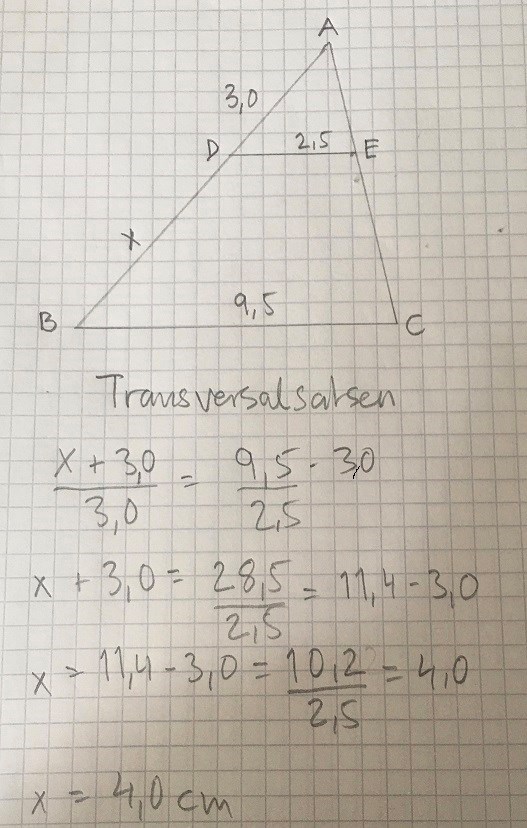 A
3,0
D 2,5 E
x
9,5
B C
Transversalsatsen
x + 3,0 / 3,0 = 9,5 / 2,5 · 3,0
x + 3,0 = 28,5 / 2,5 = 11,4 - 3,0
x = 11,4 - 3,0 = 10,2 / 2,5 = 4,0
x = 4,0 cm